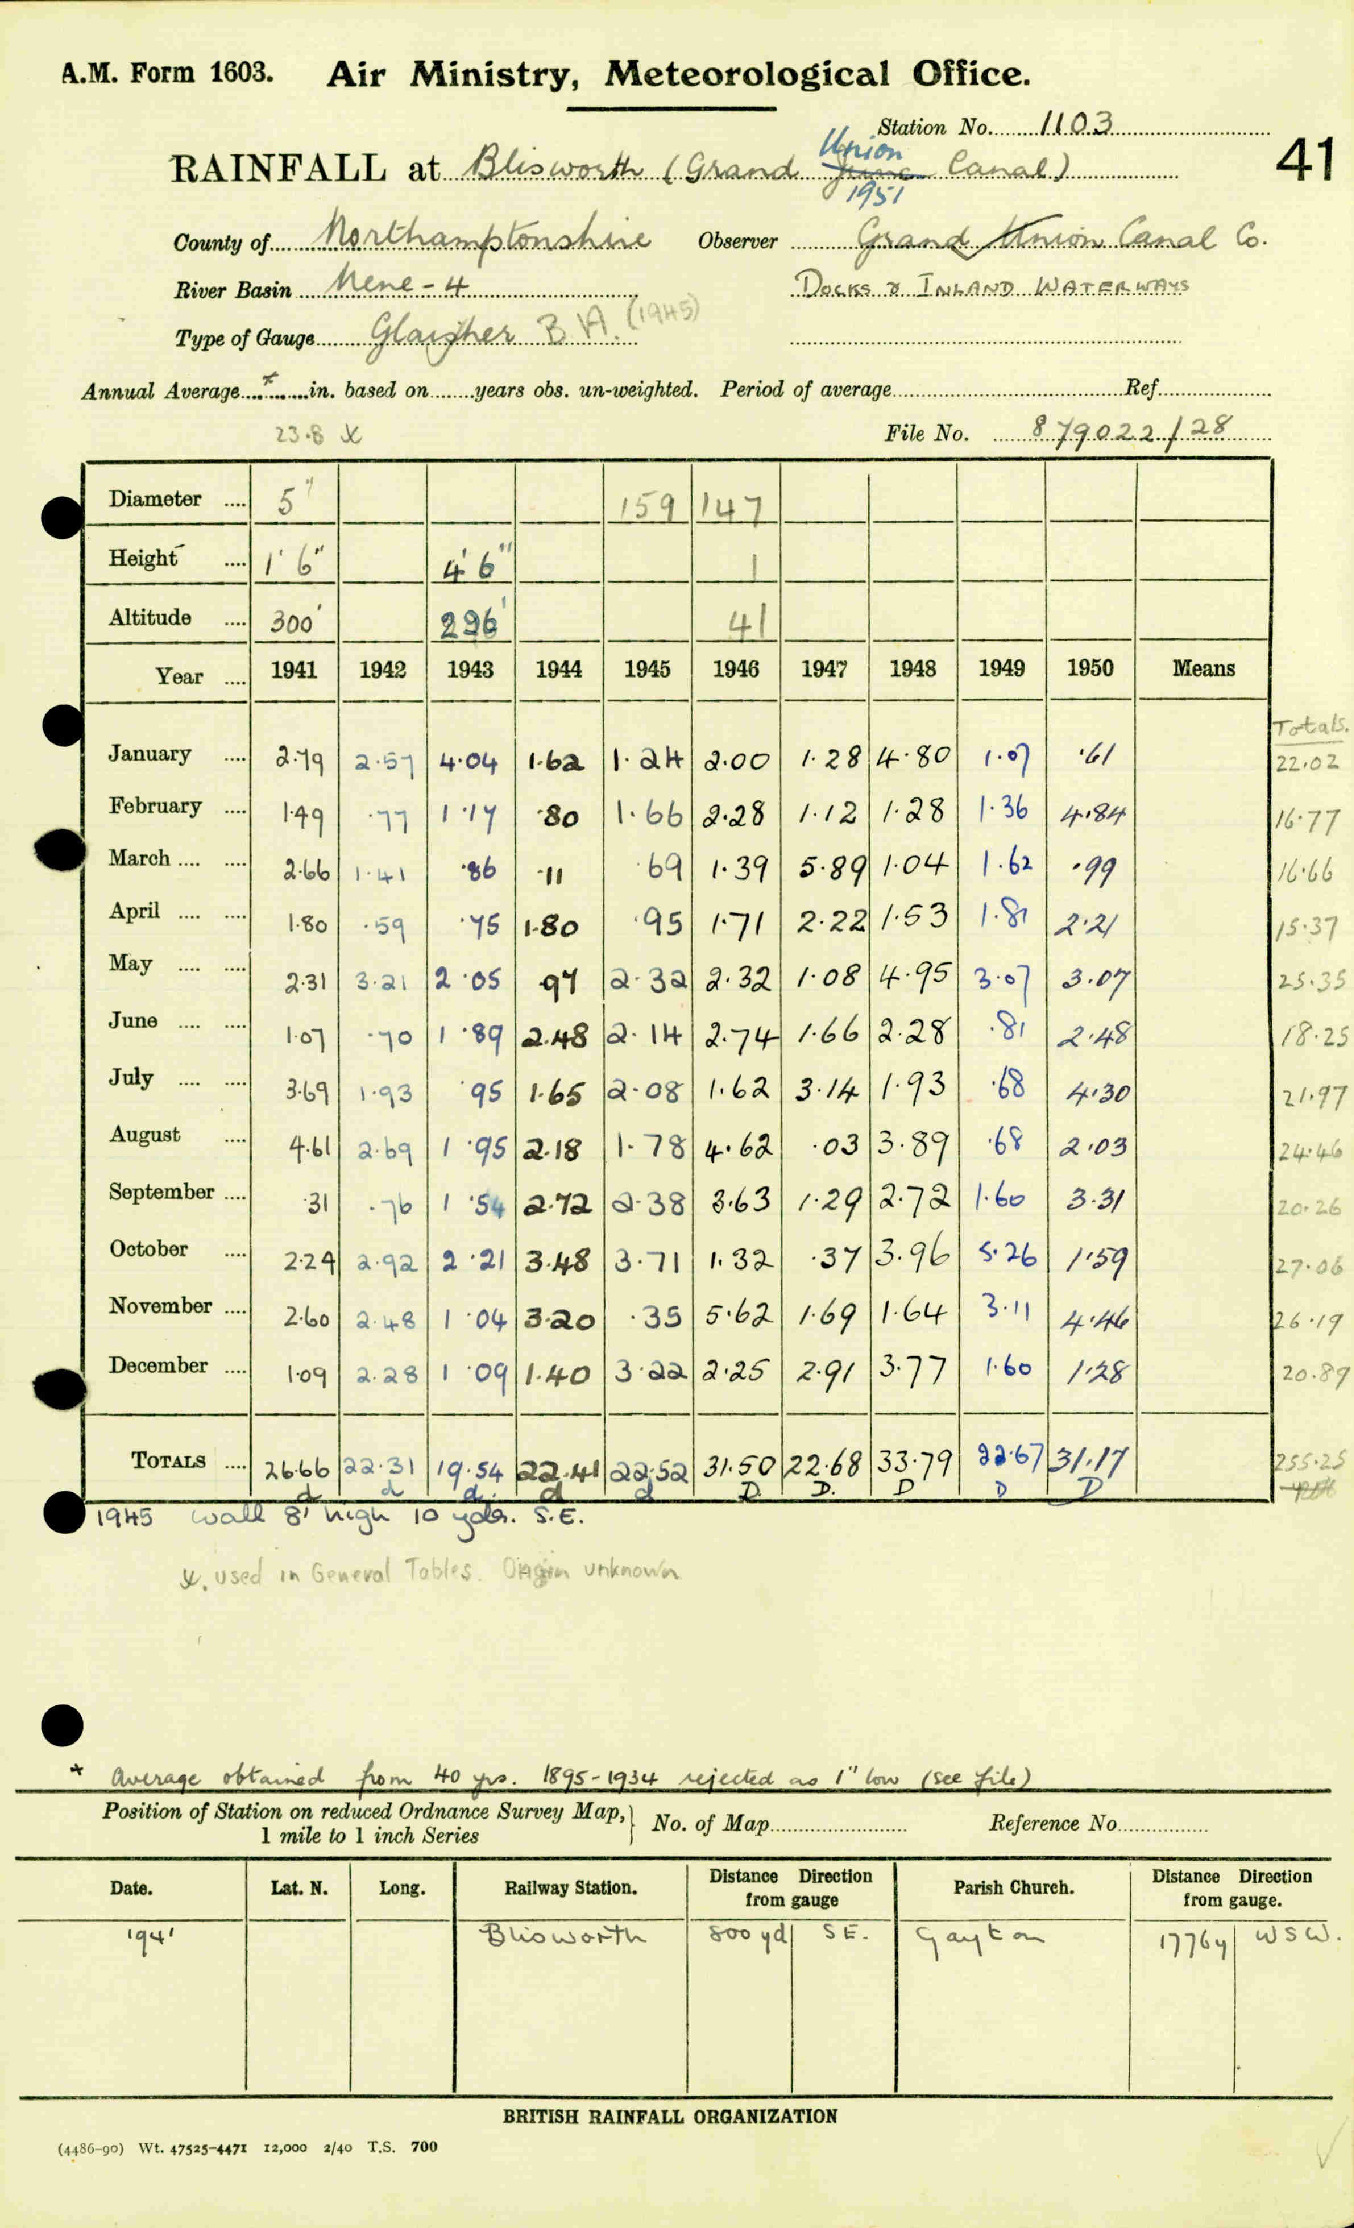 A.M. Form 1603. Air Ministry, Meteorological Office.
Station No. 1103
41
RAINFALL at Blisworth (Grand Union Canal)
1951
County of Northamptonshire Observer Grand Union Canal Co.
River Basin Nene - 4 DOCKS & INLAND WATERWAYS
Type of Gauge Glaisher B A. (1945)
Annual Average * in. based on years obs. un-weighted. Period of average Ref
23.8 x File No. 879022/28
Diameter .... 5" 159 147
Height .... 1' 6" 4' 6" 1
Altitude .... 300' 296' 41
Year .... 1941 1942 1943 1944 1945 1946 1947 1948 1949 1950 Means
Totals.
January .... 2.79 2.57 4.04 1.62 1.24 2.00 1.28 4.80 1.07 .61 22.02
February .... 1.49 .77 1.17 .80 1.66 2.28 1.12 1.28 1.36 4.84 16.77
March .... .... 2.66 1.41 .86 .11 .69 1.39 5.89 1.04 1.62 .99 16.66
April .... .... 1.80 .59 .75 1.80 .95 1.71 2.22 1.53 1.81 2.21 15.37
May .... .... 2.31 3.21 2.05 .97 2.32 2.32 1.08 4.95 3.07 3.07 25.35
June .... .... 1.07 .70 1.89 2.48 2.14 2.74 1.66 2.28 .81 2.48 18.25
July .... .... 3.69 1.93 .95 1.65 2.08 1.62 3.14 1.93 .68 4.30 21.97
August .... 4.61 2.69 1.95 2.18 1.78 4.62 .03 3.89 .68 2.03 24.46
September .... .31 .76 1.54 2.72 2.38 3.63 1.29 2.72 1.60 3.31 20.26
October .... 2.24 2.92 2.21 3.48 3.71 1.32 .37 3.96 5.26 1.59 27.06
November .... 2.60 2.48 1.04 3.20 .35 5.62 1.69 1.64 3.11 4.46 26.19
December .... 1.09 2.28 1.09 1.40 3.22 2.25 2.91 3.77 1.60 1.28 20.89
TOTALS .... 26.66 22.31 19.54 22.41 22.52 31.50 22.68 33.79 22.67 31.17 255.25
d d d. d d D. D. D D D
1945 wall 8' high 10 yds. S.E.
x. used in General Tables. Origin unknown
* Average obtained from 40 yrs. 1895-1934 rejected as 1" low (see file)
Position of Station on reduced Ordnance Survey Map, 1 mile to 1 inch Series } No. of Map Reference No.
Date. Lat. N. Long. Railway Station. Distance Direction from gauge Parish Church. Distance Direction from gauge.
1941 Blisworth 800 yd SE. Gayton 1776y WSW.
BRITISH RAINFALL ORGANIZATION
(4486-90) Wt. 47525-4471 12,000 2/40 T.S. 700